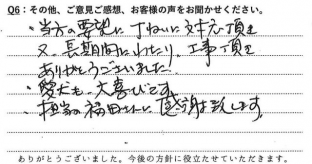 Q6:その他、ご意見ご感想、お客様の声をお聞かせください。
・当方の要望に丁ねいに対応頂き
又、長期間にわたり、工事頂き
ありがとうございました。
・愛犬も大喜びです。
・担当の福田さんに感謝致します。
ありがとうございました。今後の方針に役立たせていただきます。